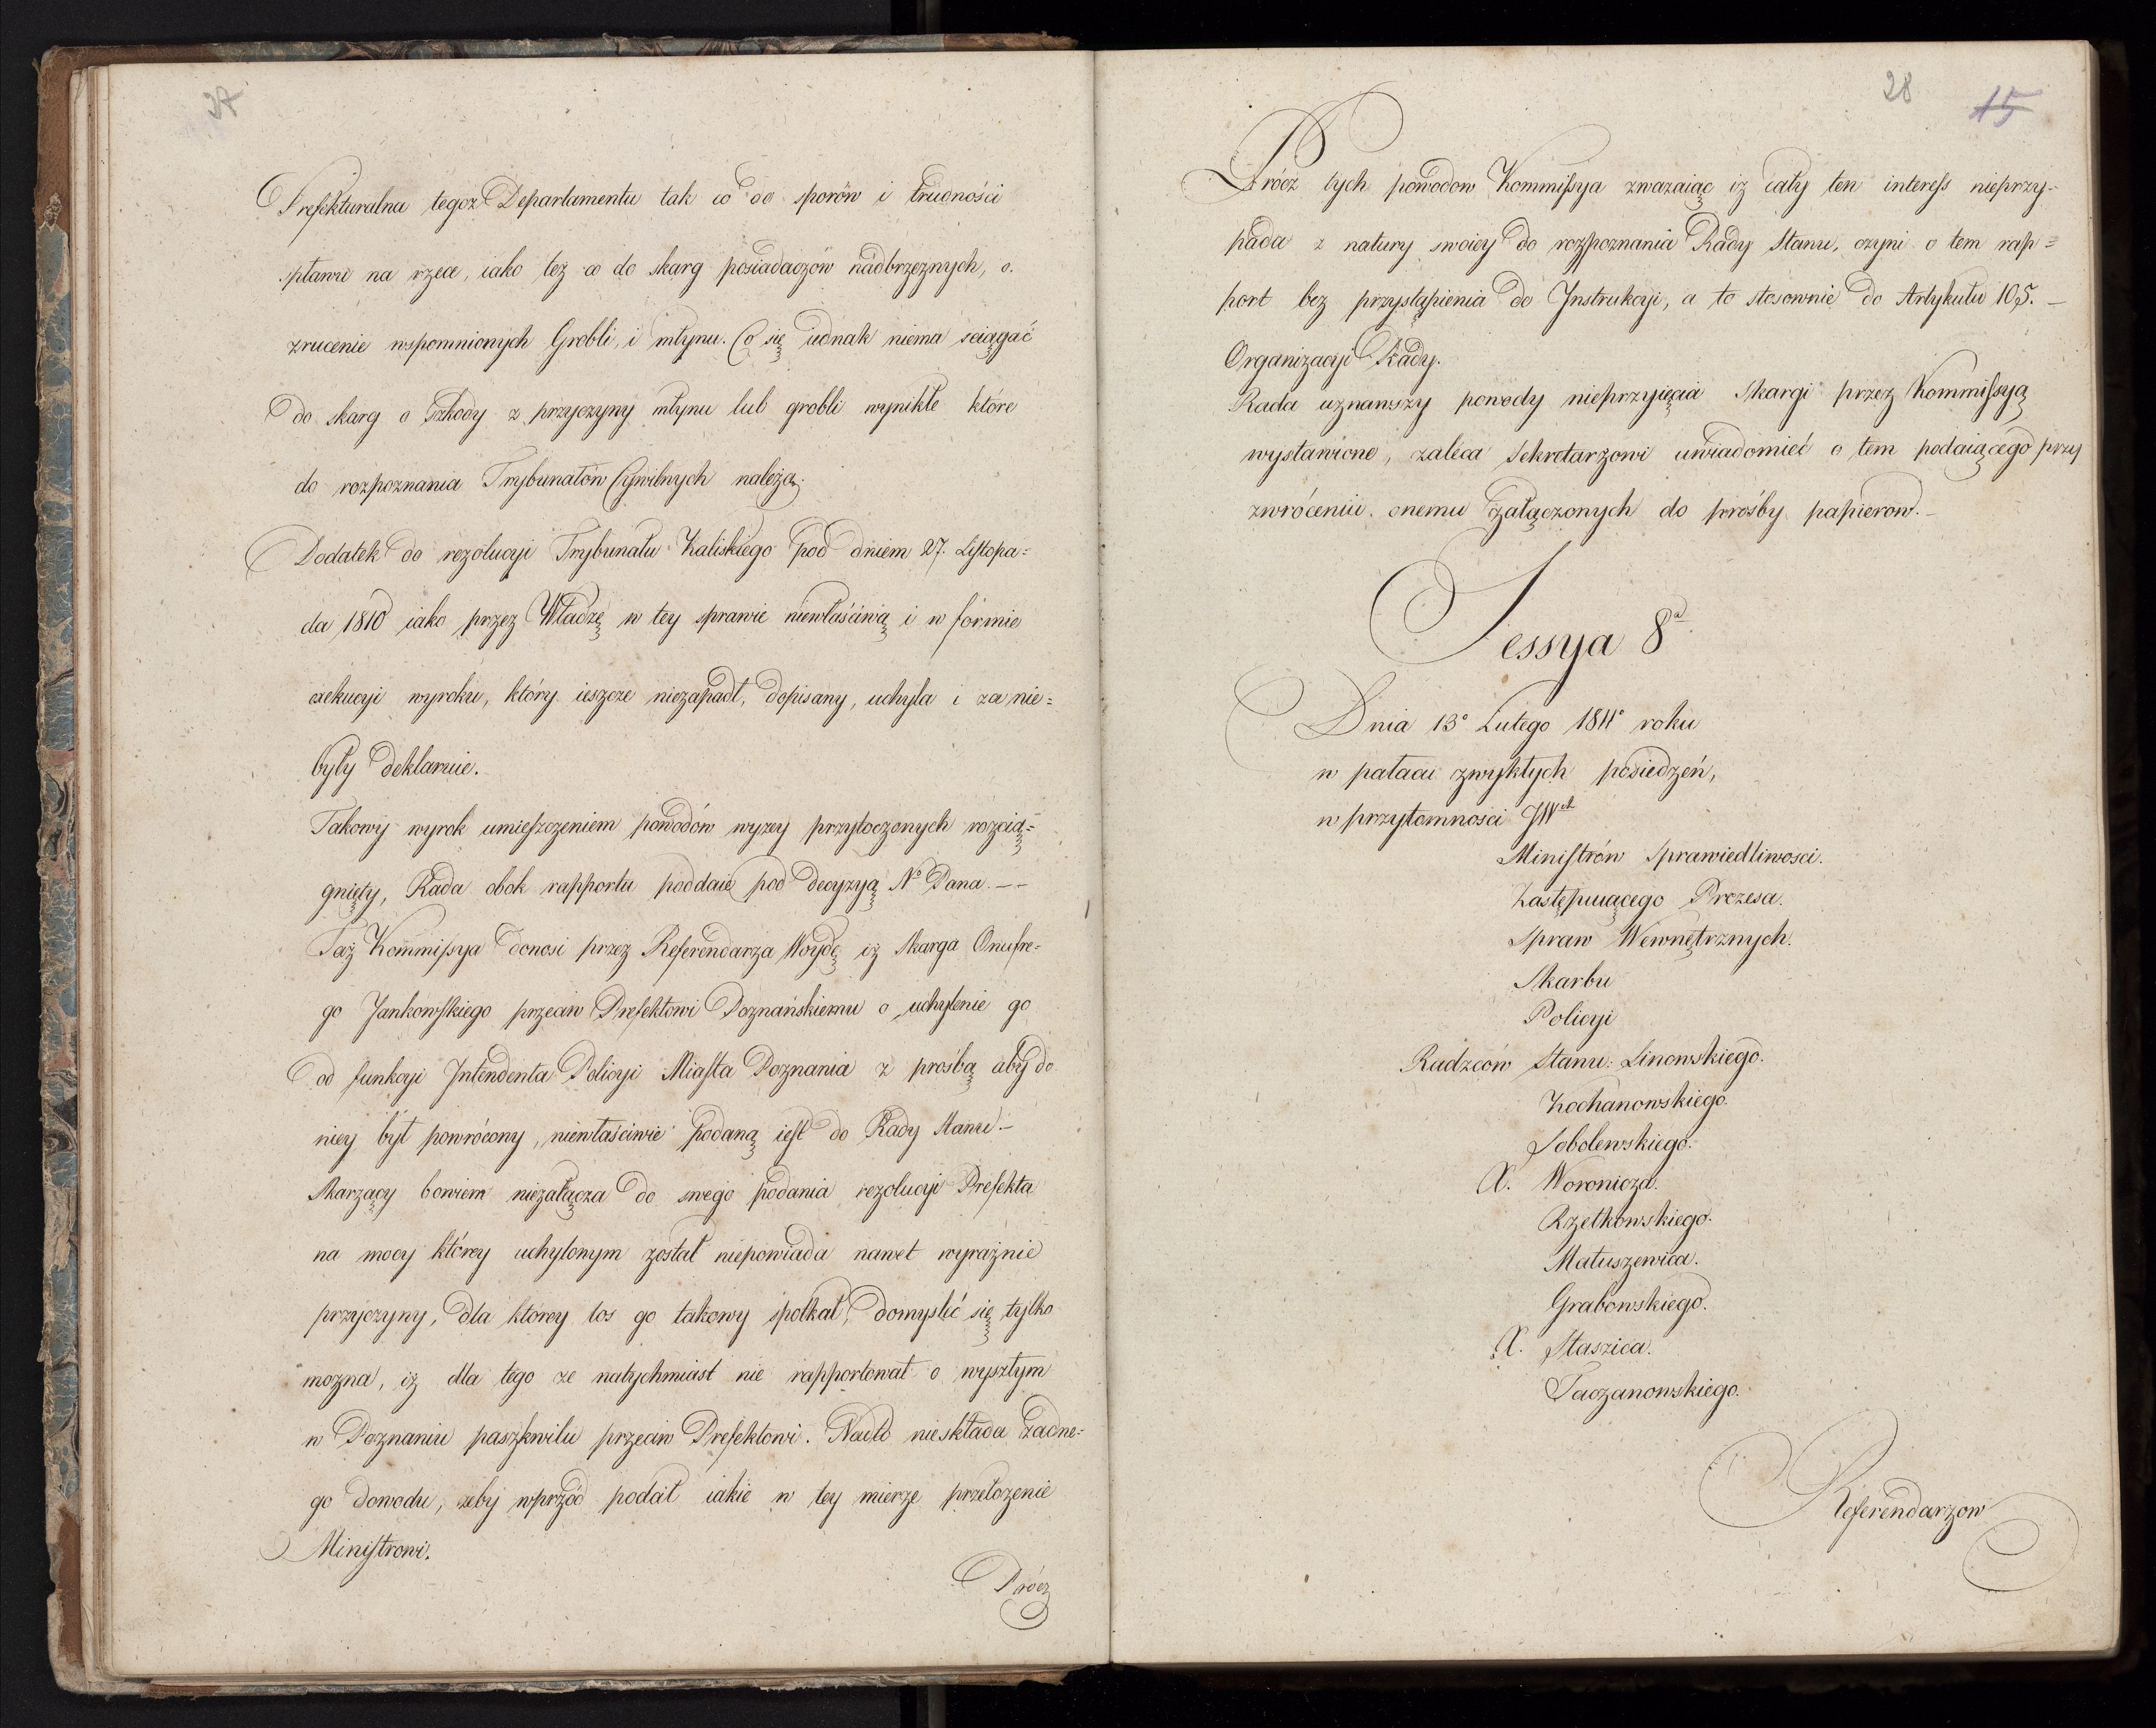 27
Prefekturalna tegoż Departamentu tak co do sporów i trudności
spławu na rzece, iako też co do skarg posiadaczów nadbrzeżnych, o
zrucenie wspomnionych Grobli, i młynu. Co się iednak niema sciągać
do skarg o szkody z przyczyny młynu lub grobli wynikłe które
do rozpoznania Trybunałów Cywilnych należą.
Dodatek do rezolucyi Trybunału Kaliskiego pod dniem 27. Listopa=
da 1810 iako przez Władzę w tey sprawie niewłaściwą i w formie
exekucyi wyroku, który ieszcze niezapadł, dopisany, uchyla i za nie=
były deklaruie.
Takowy wyrok umieszczeniem powodów wyzey przytoczonych rozcią=
gnięty, Rada obok rapportu poddaie pod decyzyą No Pana. --
Taż Kommissya donosi przez Referendarza Woydę iż skarga Onufre=
go Jankowskiego przeciw Prefektowi Poznańskiemu o uchylenie go
od funkcyi Intendenta Policyi Miasta Poznania z prośbą aby do
niey był powrócony, niewłaściwie podaną iest do Rady Stanu. -
Skarzący bowiem niezałącza do swego podania rezolucyi Prefekta
na mocy którey uchylonym został niepowiada nawet wyraźnie
przyczyny, dla którey los go takowy spotkał, domyslić się tylko
mozna, iż dla tego ze natychmiast nie rapportował o wyszłym
w Poznaniu paszkwilu przeciw Prefektowi. Nadto nieskłada żadne=
go dowodu, zeby wprzód podał iakie w tey mierze przełozenie
Ministrowi.
Prócz
28 15
Prócz tych powodow Kommissya zwazaiąc iz cały ten interess nieprzy=
pada z natury swoiey do rozpoznania Rady Stanu, czyni o tem rap=
port bez przystąpienia do Instrukcyi, a to stosownie do Artykułu 105. -
Organizacyi Rady.
Rada uznawszy powody nieprzyięcia Skargi przez Kommissyą
wystawione, zaleca Sekretarzowi uwiadomieć o tem podaiącego przy
zwróceniu onemu załączonych do prośby papierow. -
Sessya 8a
Dnia 13o Lutego 1811o roku
w pałacu zwykłych posiedzeń,
w przytomności JWch
Ministrów Sprawiedliwosci.
Zastępuiącego Prezesa.
Spraw Wewnętrznych.
Skarbu
Policyi
Radzców Stanu: Linowskiego.
Kochanowskiego.
Sobolewskiego.
X. Woronicza.
Rzetkowskiego.
Matuszewica.
Grabowskiego.
X. Staszica.
Taczanowskiego.
Referendarzow